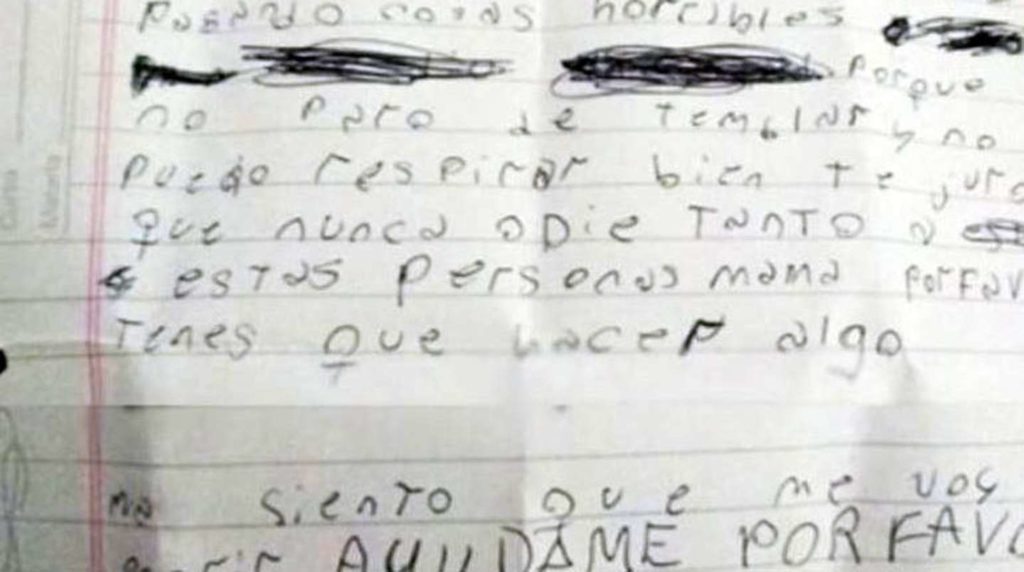 Pasando cosas horribles
porque
no paro de temblar y no
puedo respirar bien te juro
que nunca odie tanto a
estas personas mama porfav
tenes que hacer algo
me siento que me voy
morir AYUDAME POR FAVO